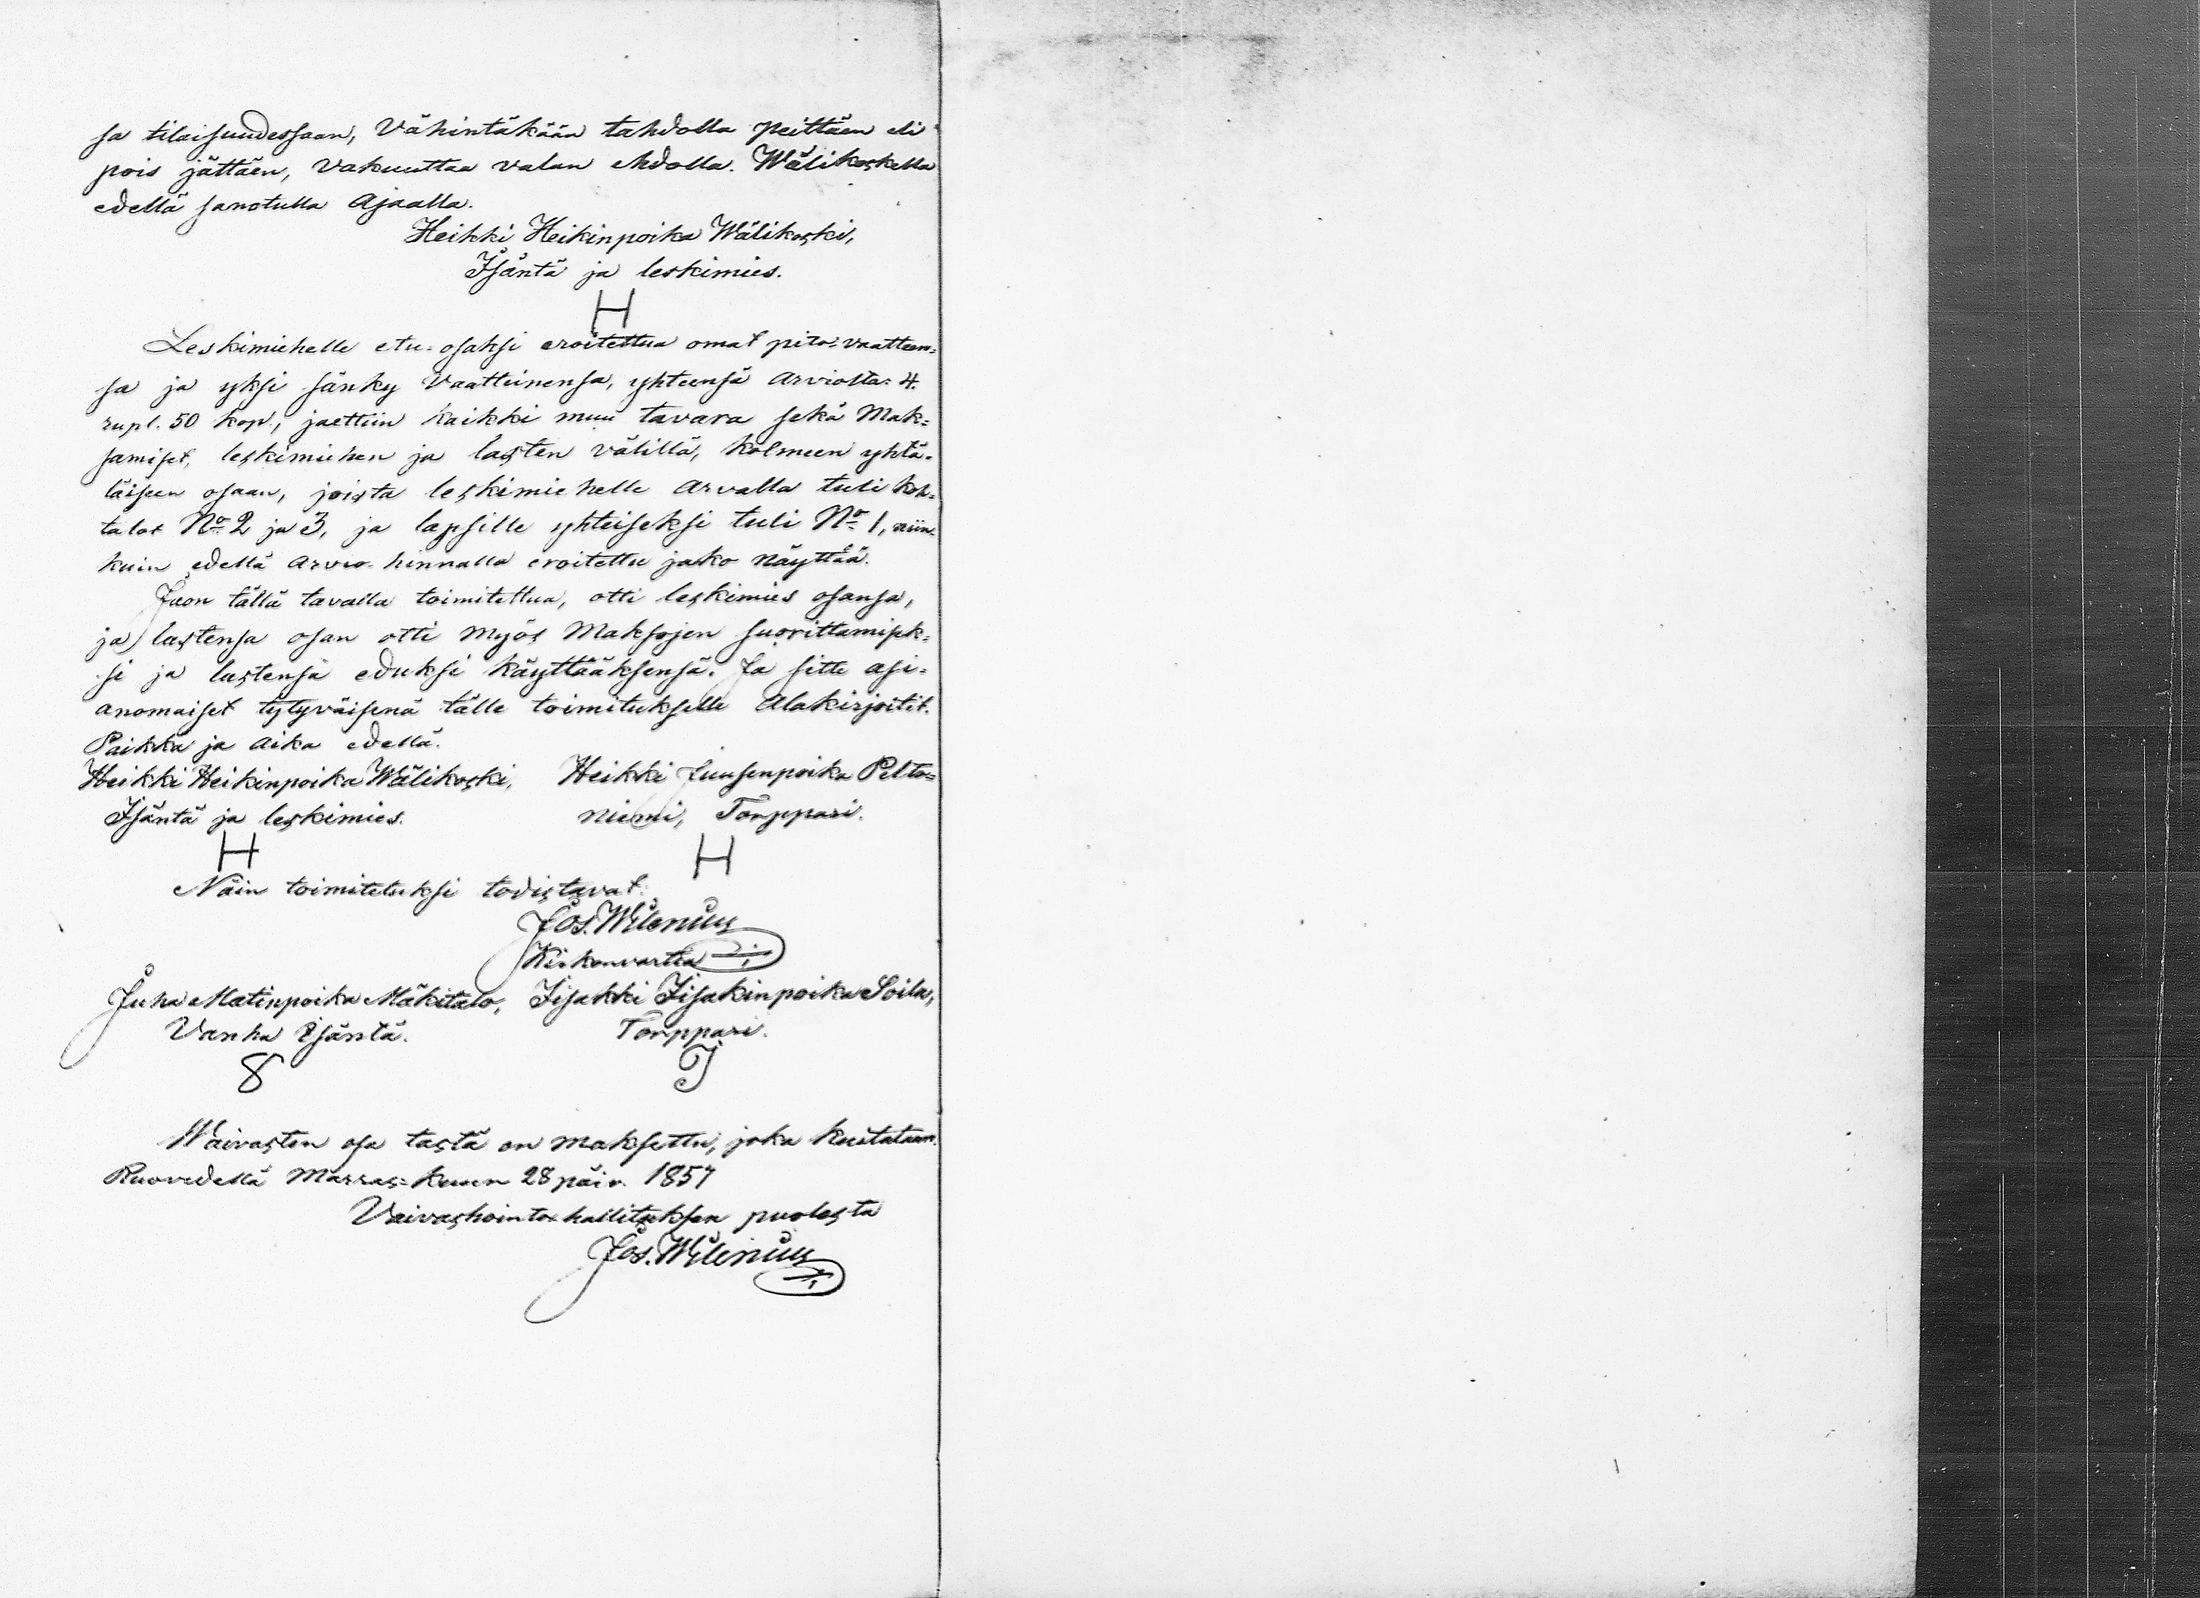 sa tilaisuudessaan, Vähintäkään tahdolla peittäen eli
pois jättäen, vakuuttaa valan ehdolla. Wälikoskella
edellä sanotulla Ajaalla.
Heikki Heikinpoika Wälikoski,
Isäntä ja leskimies.
H
Leskimiehelle etu-osaksi eroitettua omat pito-vaatteen=
sa ja yksi sänky Vaatteinensa, yhteensä arviolta: 4.
rupl. 50 kop., jaettiin kaikki muu tavara sekä Mak=
samiset, leskimiehen ja lasten välillä, kolmeen yhtä-
läiseen osaan, joista leskimiehelle arvalla tuli koh=
talot No 2 ja 3, ja lapsille yhteiseksi tuli No 1, niin-
kuin edellä arvio-hinnalla eroitettu jako näyttää.
Jaon tällä tavalla toimitettua, otti leskimies osansa,
ja lastensa osan otti myös Maksojen suorittamisek=
si ja lastensa eduksi käyttääksensä. Ja sitte asi=
anomaiset tytyväisenä tälle toimitukselle Alakirjoitit.
Paikka ja aika edellä.
Heikki Heikinpoika Wälikoski, Heikki Juusenpoika Pelto=
Isäntä ja leskimies. niemi, Torppari.
H H
Näin toimitetuksi todistavat:
Jos. Wilenius
Kirkonvartia
Juha Matinpoika Mäkitalo, Iisakki Iisakinpoika Soila,
Vanha Isäntä. Torppari.
8 I
Waivasten osa tästä on maksettu, joka kuitataan.
Ruovedellä Marras=kuun 28 päiv. 1857
Vaivashointo hallituksen puolesta
Jos. Wilenius